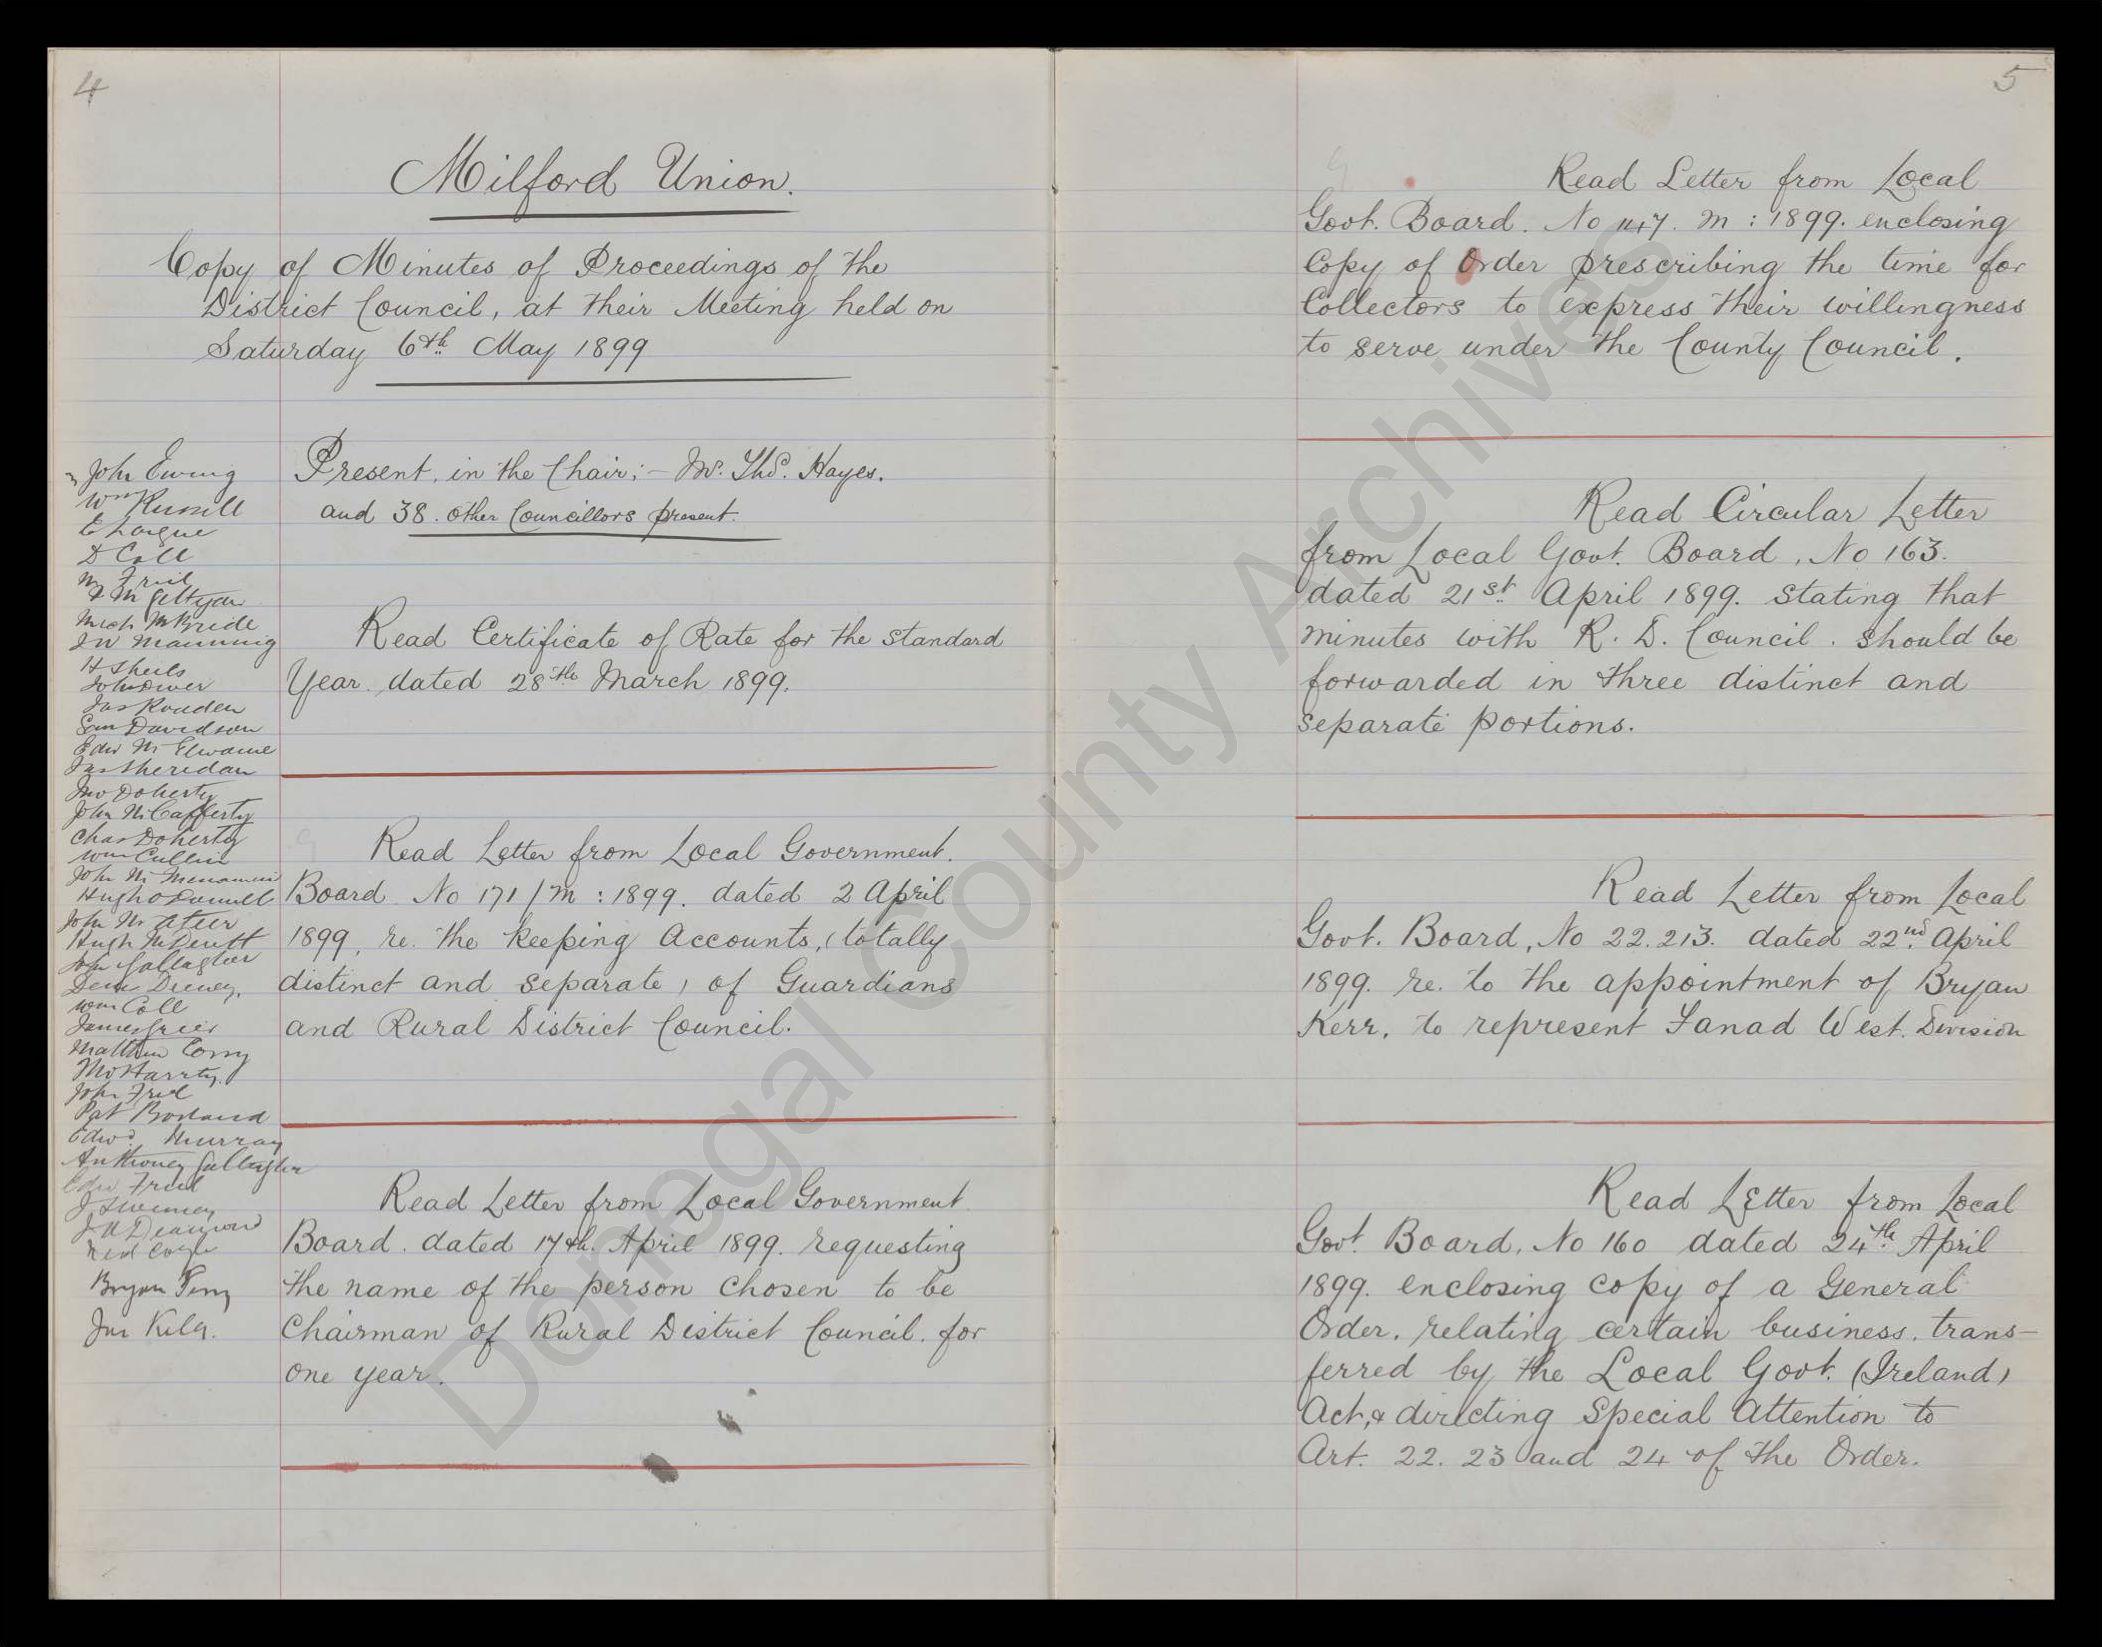 4
Milford Union.
Copy of Minutes of Proceedings of the
District Council, at their Meeting held on
Saturday 6th May 1899
John Ewing
Wm Russell
D Coll
Mich McBride
J W Manning
H Sheils
Jas Rouden
Sam Davidson
Jas Sheridan
Jno Doherty
John McCafferty
Chas Doherty
Wm Cullen
Hugh O Donnell
Hugh McDevitt
John Gallagher
Wm Coll
James Grier
Matthew
John Friel
Pat Borland
Edwd Murray
Anthoney Gallagher
Edw Friel
J Sweeney
Bryan
Jas
Present, in the Chair; – Mr. Thos. Hayes.
and 38. other Councillors present.
Read Certificate of Rate for the standard
Year. dated 28th March 1899.
Read Letter from Local Government.
Board No 171/M : 1899. dated 2 April
1899, re. the keeping Accounts, (totally
distinct and separate) of Guardians
and Rural District Council.
Read Letter from Local Government
Board. dated 17th. April 1899. requesting
the name of the person chosen to be
Chairman of Rural District Council. for
one year.
5
Read Letter from Local
Govt. Board. No M : 1899. enclosing
Copy of Order prescribing the time for
Collectors to express their willingness
to serve under the County Council.
Read Circular Letter
from Local Govt. Board, No 163.
dated 21st April 1899. stating that
minutes with R. D. Council. should be
forwarded in three distinct and
separate portions.
Read Letter from Local
Govt. Board, No 22.213. dated 22nd April
1899. re. to the appointment of Bryan
Kerr, to represent Fanad West. Division
Read Letter from Local
Govt. Board, No 160 dated 24th April
1899. enclosing copy of a General
Order, relating certain business, trans-
ferred by the Local Govt. (Ireland)
Act, & directing Special Attention to
Art. 22. 23 and 24 of the Order.
Donegal County Archives